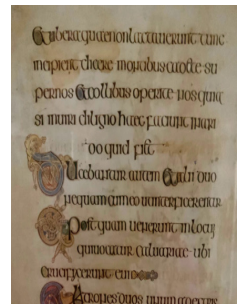 & ubera quae non lactauerunt tunc
incipient dicere montibus cadite su
per nos & collibus operite nos quia
si in uiridi ligno haec faciunt in ari
do quid fiet
Ducebantur autem & alii duo
nequam cum eo ut interficerentur
Postquam uenerunt in locum
qui uocatur caluariae ibi
crucifixerunt eum
latrones duos unum